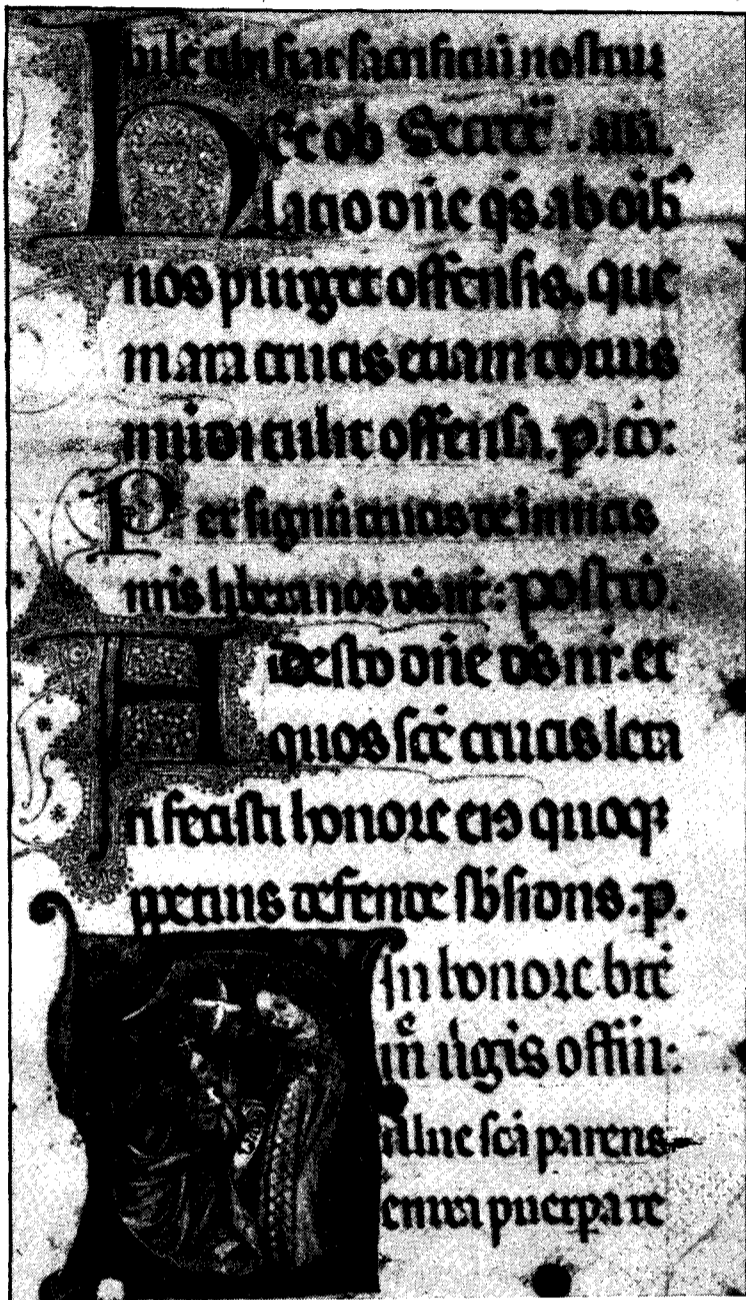 dulc abstrac sanctificatū nostrū
Hec ob Secret̄ . alia.
latio dn̄e q̄s ab oib⁹
nos purget offensis. que
in ara crucis etiam totius
mūdi tulit offensa. p. cō:
Per signū crucis de inimicis
nr̄is libera nos ds̄ nr̄: postcō.
Adesto dn̄e ds̄ nr̄. et
quos sc̄e crucis leta
ri fecisti honore eiꝰ quoqꝫ
ppetuis defende sb̄sidiis. p.
In honore btē
mē v̓gis offm̄:
Salue sc̄a parens
enixa puerpa re